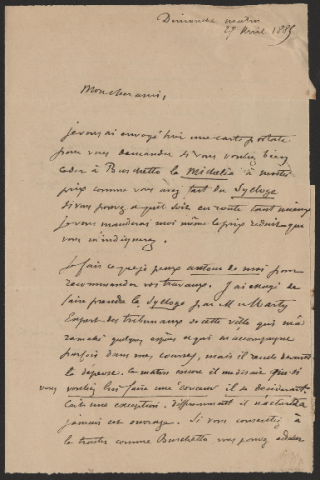 Dimanche matin
29 Avril 1885
Mon cher ami,
je vous ai envoyé hier une carte postale
pour vous demander si vous voulez bien
céder à Buschetto la Midalia à moitié
prix comme vous avez fait du Sylloge
si vous pouvez et qu'il soit en route tant mieux
je vous manderai moi même le prix réduit que
vous m'indiquerez.
Je fais ce que je peux autour de moi pour
recommander vos travaux. J'ai engagé
faire prendre le Sylloge par M. Marty
Expert des tribunaux de cette ville qui m'a
quelques et qui m'accompagne
parfois dans mes courses, mais il recule devant
la dépense. Ce matin encore il me disait que si
vous vouliez lui faire une douceur il se déciderait
une exception, il n'achettera
jamais cet ouvrage. Si vous consentez à
le traiter comme Buschetto vous pouvez